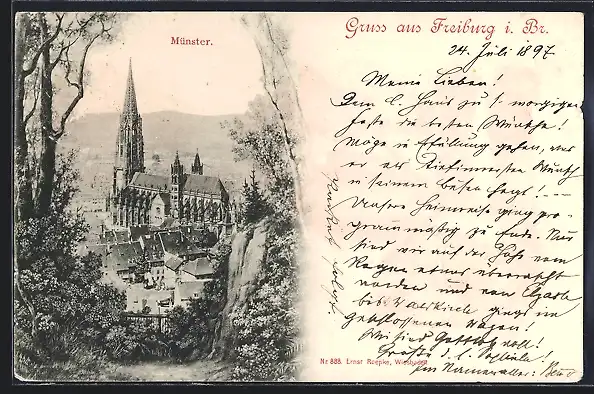 Münster.
Gruss aus Freiburg i. Br.
24. Juli 1897
Meine Lieben!
Dem l. Hans zu s. morgigen
Feste die besten Wünsche!
Möge in Erfüllung gehen, was
er als tiefinnersten Wunsch
in seinem Busen hegt! –
Unsere Heimreise ging pro-
grammäßig zu Ende. Nur
sind wir auf der Höhe vom
Regen etwas überrascht
worden und von Elzach
bis Waldkirch gings im
geschlossenen Wagen!
Grüße
Nr 888. Ernst Roepke, Wiesbaden